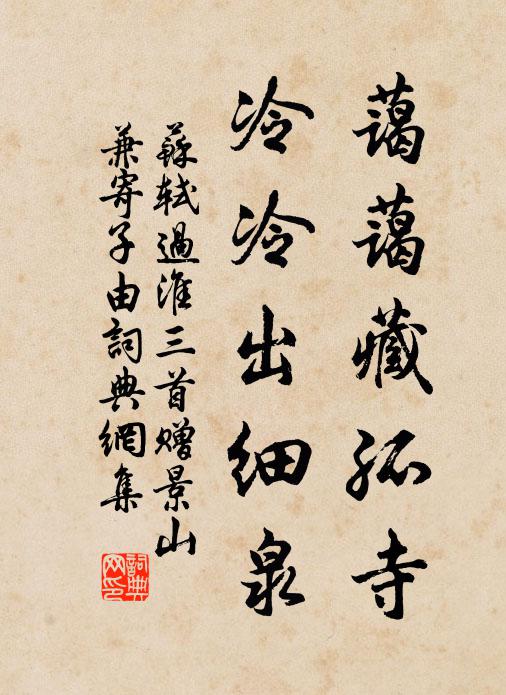 藹藹藏孤寺
冷冷出細泉
蘇軾過淮三首贈景山
兼寄子由詞典網集
詞典
网印